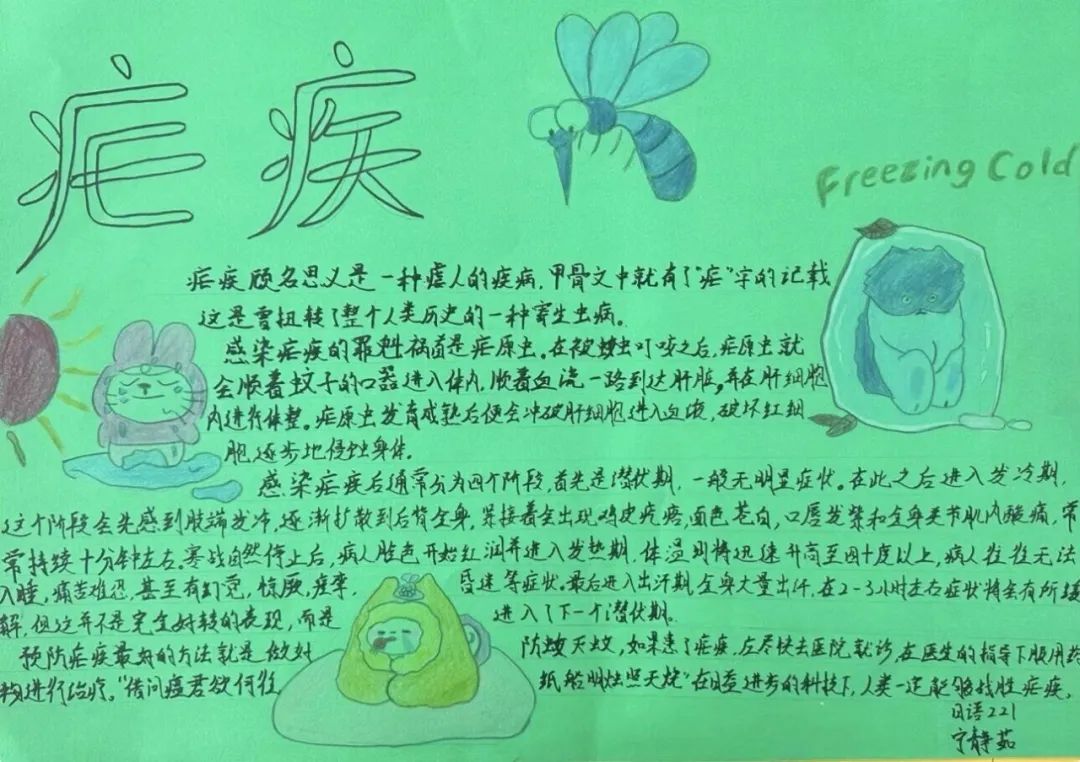 疟疾
Freezing Cold
疟疾顾名思义是一种虐人的疾病,甲骨文中就有了"疟"字的记载
这是曾扭转了整个人类历史的一种寄生虫病。
感染疟疾的罪魁祸首是疟原虫。在被蚊虫叮咬之后,疟原虫就
会顺着蚊子的口器进入体内,顺着血流一路到达肝脏,并在肝细胞
内进行休整。疟原虫发育成熟后便会冲破肝细胞进入血液,破坏红细
胞逐步地侵蚀身体。
感染疟疾后通常分为四个阶段,首先是潜伏期,一般无明显症状。在此之后进入发冷期,
这个阶段会先感到肢端发冷,逐渐扩散到后背全身,紧接着会出现鸡皮疙瘩,面色苍白,口唇发紫和全身关节肌肉酸痛,常
常持续十分钟左右。寒战自然停止后,病人脸色开始红润并进入发热期,体温则将迅速升高至四十度以上,病人往往无法
入睡,痛苦难忍,甚至有幻觉,惊厥,痉挛,昏迷等症状。最后进入出汗期,全身大量出汗,在2-3小时左右症状将会有所缓
解,但这并不是完全好转的表现,而是进入了下一个潜伏期。
预防疟疾最好的方法就是做好防蚊灭蚊,如果患了疟疾,应尽快去医院就诊,在医生的指导下服用药
物进行治疗。"借问瘟君欲何往 纸船明烛照天烧"在日益进步的科技下,人类一定能够战胜疟疾。
日语221
宁静茹